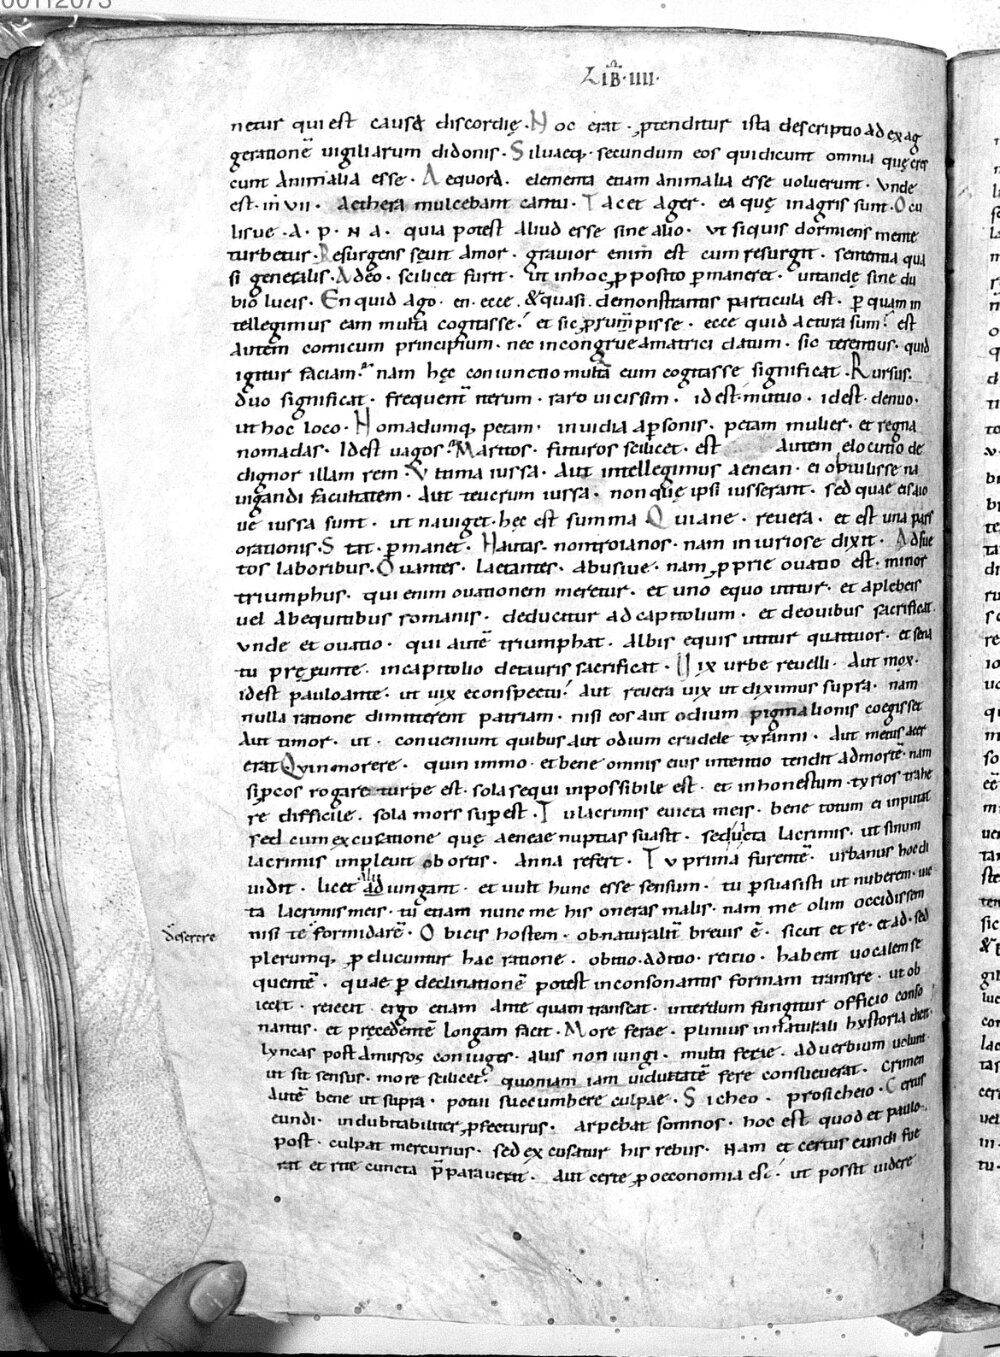 00112073
LIB̅·IIII·
netur qui est causa discordię· Hoc erat· ꝓtenditur ista descriptio ad exag
gerationē vigiliarum didonis· Siluaeq;· secundum eos qui dicunt omnia quę cres
cunt animalia esse· Aequora· elementa etiam animalia esse uoluerunt· vnde
est· in̅ VII· aethera mulcebant cantu· Tacet ager· ea quę in agris sunt· Ocu
lisue ·A· P· N A· quia potest aliud esse sine alio· ut siquis dormiens mente
turbetur· Resurgens sęuit amor· grauior enim est cum resurgit· sententia qua
si generalis· Adeo· scilicet furit· ut in hoc ꝓposito ꝑmaneret· uitandę sine du
bio lucis· En quid ago· en· ecce· & quasi demonstrantis particula est· ꝑ quam in
tellegimus eam multa cogitasse· et sic ꝓrumpisse· ecce quid actura sum· est
autem comicum principium· nec incongrue amatrici datum· sic terentius· quid
igitur faciam· nam hęc coniunctio multa eum cogitasse significat· Rursus·
duo significat· frequent̅ iterum· raro uicissim· id est· mutuo· id est· denuo·
ut hoc loco· Nomadumq; petam· inuidia a ꝑsonis· petam mulier· et regna
nomadas· Idest uagos· Maritos· futuros scilicet· est autem elocutio de
dignor illam rem· Vltima iussa· Aut intellegimus aenean· ei obtulisse na
uigandi facultatem· Aut teucrum iussa· non quę ipsi iusserant· sed quae eis a io
ue iussa sunt· ut nauiget· hęc est summa Quiane· reuera· et est una pars
orationis· Stat· ꝑmanet· Nautas· non troianos· nam iniuriose dixit· Adsue
tos laboribus· Ouantes· laetantes· abusiue· nam ꝓprie ouatio est· minor
triumphus· qui enim ouationem meretur· et uno equo utitur· et a plebeis
uel ab equitibus romanis· deducitur ad capitolium· et de ouibus sacrificat·
vnde et ouatio· qui autē triumphat· albis equis utitur quattuor· et sena
tu pręeunte· in capitolio de tauris sacrificat· Vix urbe reuelli· Aut mox·
idest paulo ante· ut uix e conspectu· aut reuera uix ut diximus supra· nam
nulla ratione dimitterent patriam· nisi eos aut odium pigmalionis coegisset
Aut timor· ut· conueniunt quibus aut odium crudele tyranni· Aut metus acer
erat Quin morere· quin immo· et bene omnis eius intentio tendit ad mortē· nam
si ꝓcos rogare turpe est· sola sequi inpossibile est· et inhonestum· tyrios trahe
re difficile· sola mors suꝑest· Tu lacrimis euicta meis· bene totum ei inputat
sed cum excusatione quę aeneae nuptias suasit· seducta lacrimis· ut sinum
lacrimis impleuit obortis· Anna refert· Tu prima furentē· urbanus hoc di
uidit· licet adiungant· et uult hunc esse sensum· tu ꝑsuasisti ut nuberem· uic
ta lacrimis meis· tu etiam nunc me his oneras malis· nam me olim occidissem
nisi te formidarē· Obicis hostem· ob naturalit̅ breuis ē· sicut et re· et ad· sed
deserere
plerumq; ꝓducuntur hac ratione· obitio· aditio· reitio· habent uocalem se
quentē· quae ꝑ declinationē potest in consonantis formam transire· ut ob
iecit· reiecit ergo etiam ante quam transeat· interdum fungitur officio conso
nantis· et pręcedentē longam facit· More ferae· plinius in naturali hystoria dicit·
lyncas post amissos coniuges· aliis non iungi· multi ferie· aduerbium uolunt·
ut sit sensus· more scilicet· quoniam iam uiduitatē fere consueuerat· Crimen
autē bene ut supra· potui succumbere culpae· Sicheo· pro sicheio· Certus
eundi· indubitabiliter ꝓfecturus· carpebat somnos· hoc est quod et paulo
post· culpat mercurius· sed excusatur his rebus· Nam et certus eundi fue
rat et rite cuncta p̄parauerat· aut certe ꝓ oeconomia est· ut possit uidere